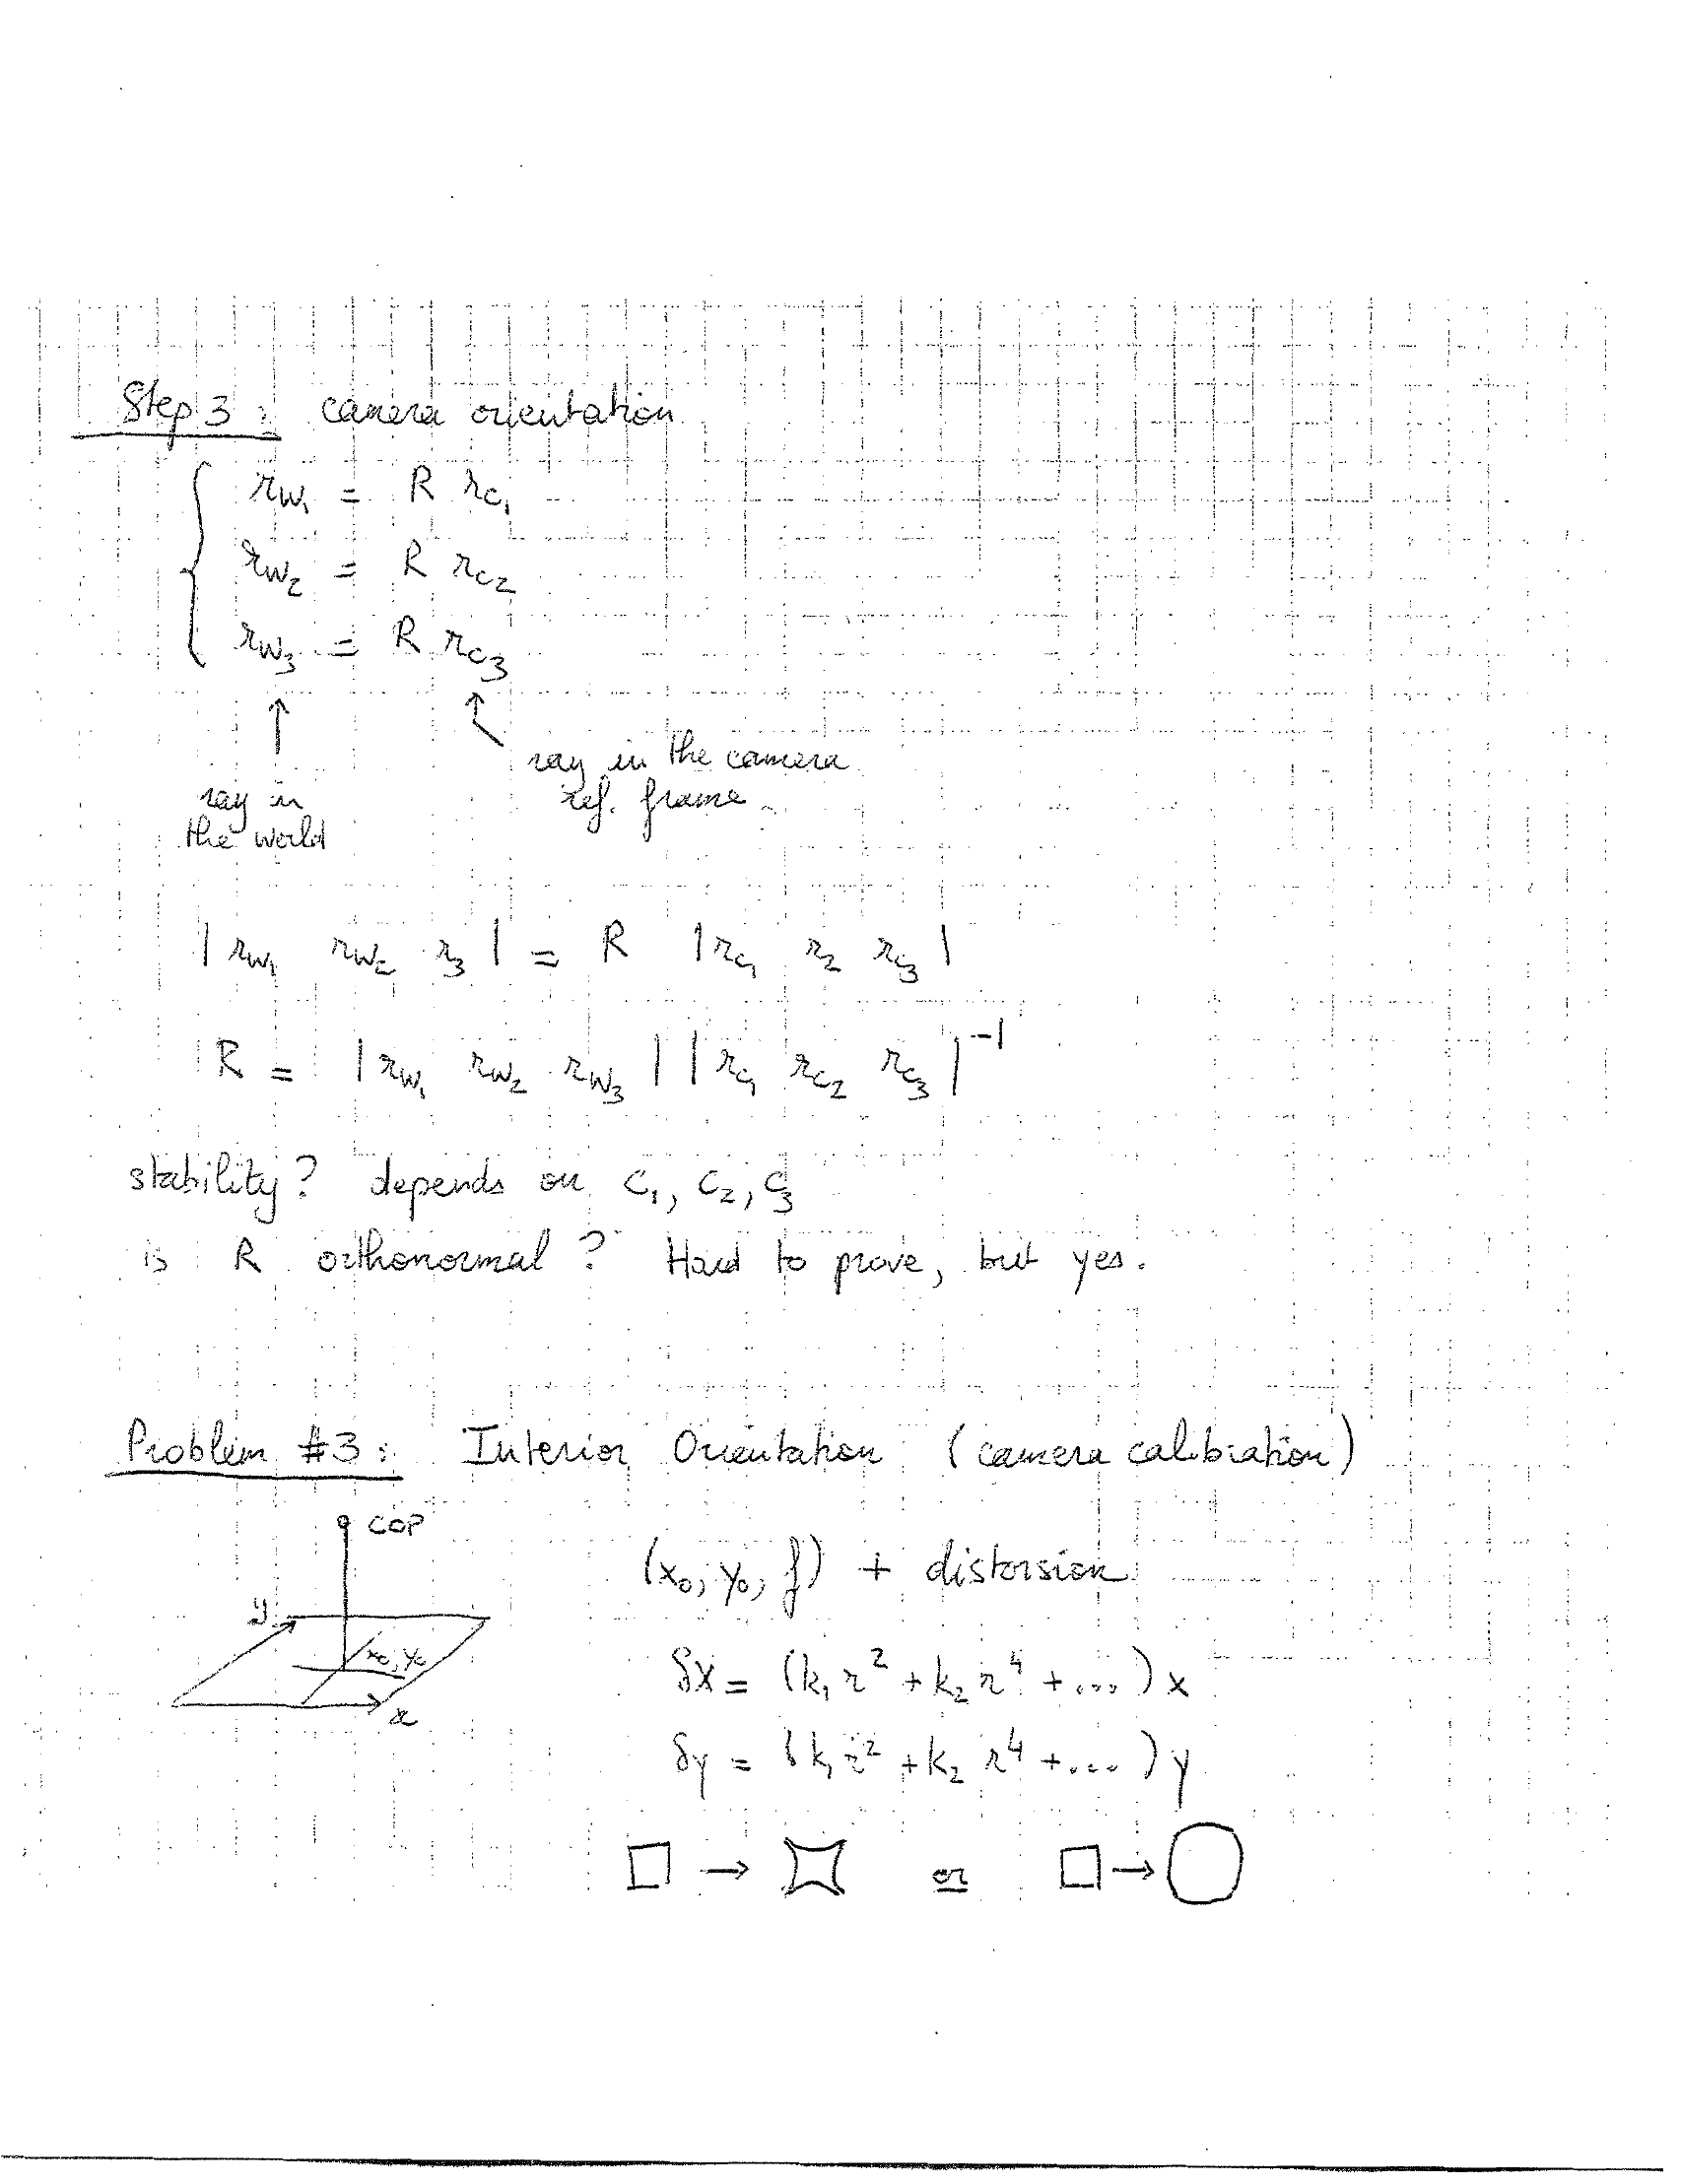 Step 3 : camera orientation
r_W₁ = R r_C₁
r_W₂ = R r_C₂
r_W₃ = R r_C₃
ray in the camera
ref. frame
ray in
the world
| r_W₁ r_W₂ r_3 | = R | r_C₁ r_2 r_C₃ |
R = | r_W₁ r_W₂ r_W₃ | | r_C₁ r_C₂ r_C₃ |⁻¹
stability? depends on C₁, C₂, C₃
is R orthonormal ? Hard to prove, but yes.
Problem #3 : Interior Orientation (camera calibration)
COP
(x₀, y₀, f) + distorsion
y
x₀, y₀
x
δx = (k₁ r² + k₂ r⁴ + ...) x
δy = (k₁ r² + k₂ r⁴ + ....) y
□ → or □ →